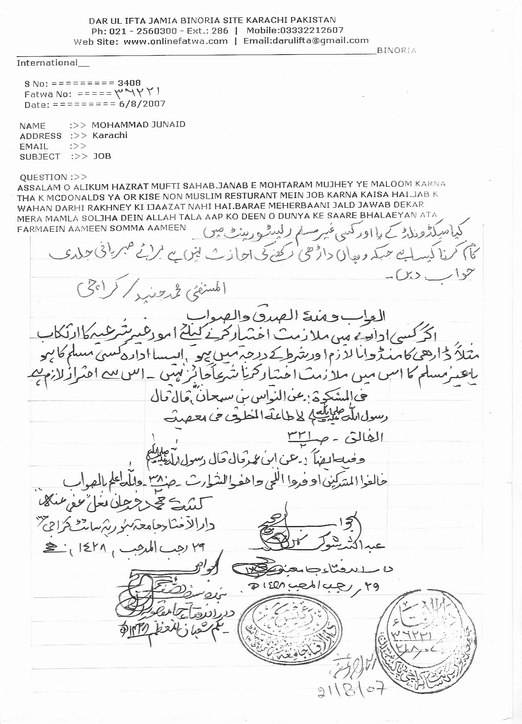 DAR UL IFTA JAMIA BINORIA SITE KARACHI PAKISTAN
Ph: 021 - 2560300 - Ext.: 286 | Mobile:03332212607
Web Site: www.onlinefatwa.com | Email:darulifta@gmail.com
BINORIA
International__
S No: ========= 3408
Fatwa No: ===== ۳۶۲۲۱
Date: ========= 6/8/2007
NAME :>> MOHAMMAD JUNAID
ADDRESS :>> Karachi
EMAIL :>>
SUBJECT :>> JOB
QUESTION :>>
ASSALAM O ALIKUM HAZRAT MUFTI SAHAB.JANAB E MOHTARAM MUJHEY YE MALOOM KARNA
THA K MCDONALDS YA OR KISE NON MUSLIM RESTURANT MEIN JOB KARNA KAISA HAI.JAB K
WAHAN DARHI RAKHNEY KI IJAAZAT NAHI HAI.BARAE MEHERBAANI JALD JAWAB DEKAR
MERA MAMLA SOLJHA DEIN ALLAH TALA AAP KO DEEN O DUNYA KE SAARE BHALAEYAN ATA
FARMAEIN AAMEEN SOMMA AAMEEN
کیا میکڈونلڈ کے یا اور کسی غیر مسلم ریسٹورینٹ میں
کام کرنا کیسا ہے جبکہ وہاں داڑھی رکھنے کی اجازت نہیں ہے برائے مہربانی جلدی
جواب دیں۔
المستفتی محمد جنید / کراچی
الجواب ومنہ الصدق والصواب
اگر کسی ادارے میں ملازمت اختیار کرنے کیلئے امور غیر شرعیہ کا ارتکاب
مثلاً ڈارھی کا منڈوانا لازم اور شرط کے درجہ میں ہو ایسا ادارہ کسی مسلم کا ہو
یا غیر مسلم کا اس میں ملازمت اختیار کرنا شرعاً جائز نہیں ۔ اس سے احتراز لازم ہے
فی المشکوۃ : عن النواس بن سمعان قال قال
رسول اللہ ﷺ لا طاعۃ لمخلوق فی معصیۃ
الخالق - ص ۳۲۱
وفیہ ایضاً : عن ابن عمر قال قال رسول اللہ ﷺ
خالفوا المشرکین اوفروا اللحی واحفوا الشوارب - ص ۳۸۰ واللہ اعلم بالصواب
دار الافتاء جامعہ بنوریہ سائٹ کراچی
۲۹ رجب المرجب ۱۴۲۸ھ
عبد اللہ شوکت
دار الافتاء جامعہ بنوریہ
۲۹ رجب المرجب ۱۴۲۸ھ
دار الافتاء
۳۶۲۲۱
21/8/07